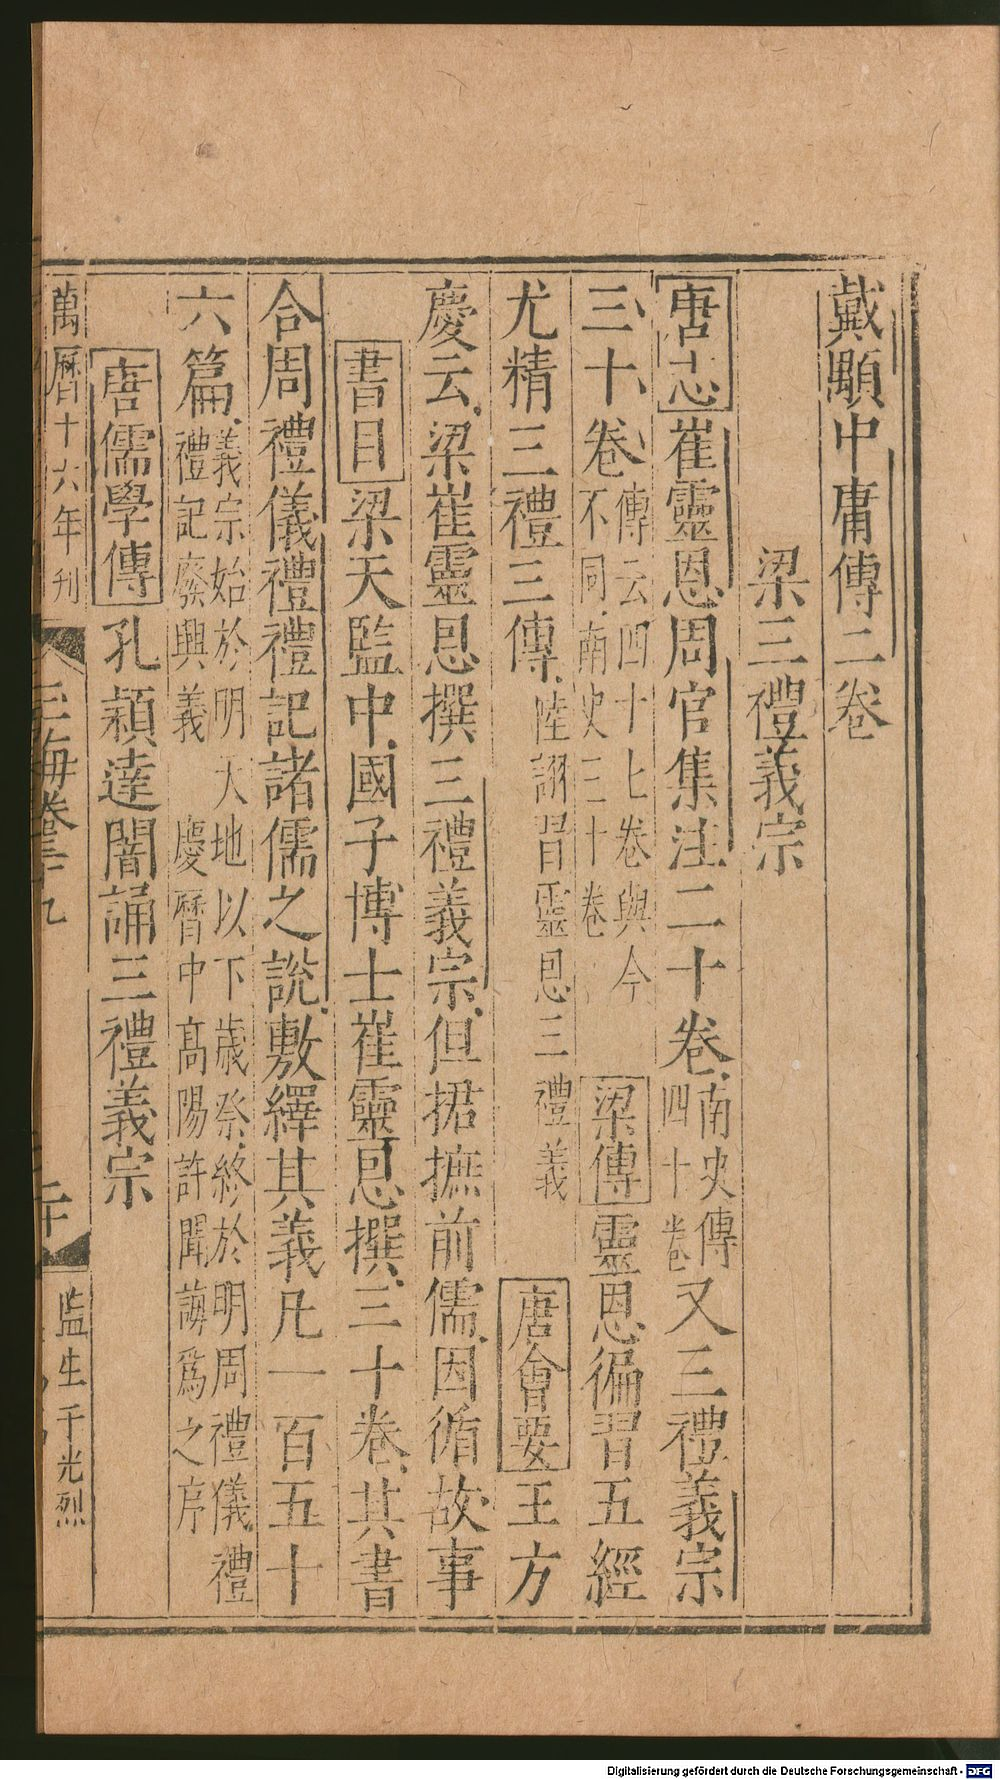 戴顒中庸傳二卷
梁三禮義宗
唐志崔靈恩周官集注二十卷南史傳四十卷又三禮義宗
三十卷傳云四十七卷與今不同南史三十卷梁傳靈恩徧習五經
尤精三禮三傳陸詡習靈恩三禮義唐會要王方
慶云梁崔靈恩撰三禮義宗但捃摭前儒因循故事
書目梁天監中國子博士崔靈恩撰三十卷其書
合周禮儀禮禮記諸儒之說敷繹其義凡一百五十
六篇義宗始於明天地以下歲祭終於明周禮儀禮禮記廢興義 慶曆中高陽許聞誨爲之序
唐儒學傳孔穎達闇誦三禮義宗
萬曆十六年刊 玉海卷三十九 二十 監生千光烈
Digitalisierung gefördert durch die Deutsche Forschungsgemeinschaft - DFG